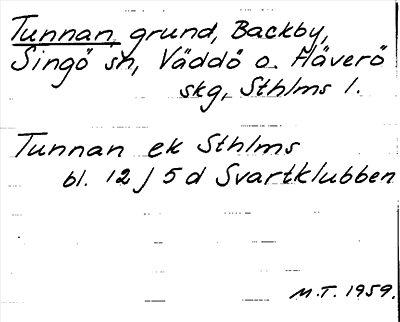 Tunnan, grund, Backby,
Singö sn, Väddö o. Häverö
skg, Sthlms l.
Tunnan ek Sthlms
bl. 12 J 5 d Svartklubben
M.T. 1959.